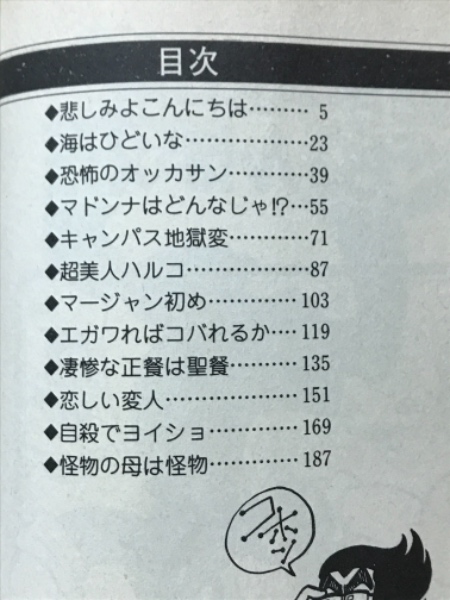 目次
◆悲しみよこんにちは……… 5
◆海はひどいな………………23
◆恐怖のオッカサン…………39
◆マドンナはどんなじゃ!?…55
◆キャンパス地獄変…………71
◆超美人ハルコ………………87
◆マージャン初め…………103
◆エガワればコバれるか…119
◆凄惨な正餐は聖餐………135
◆恋しい変人………………151
◆自殺でヨイショ…………169
◆怪物の母は怪物…………187
コホッ